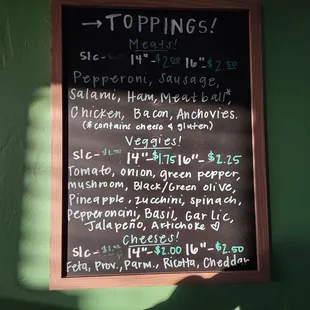 →TOPPINGS!
Meats!
Slc- 14"-$2.00 16"-$2.50
Pepperoni, Sausage,
Salami, Ham, Meatball*,
Chicken, Bacon, Anchovies.
(*contains cheese & gluten)
Veggies!
Slc- 14"-$1.75 16"-$2.25
Tomato, onion, green pepper,
mushroom, Black/Green olive,
Pineapple, zucchini, spinach,
Pepperoncini, Basil, Garlic,
Jalapeño, Artichoke ♡
Cheeses!
Slc- 14"-$2.00 16"-$2.50
Feta, Prov., Parm., Ricotta, Cheddar